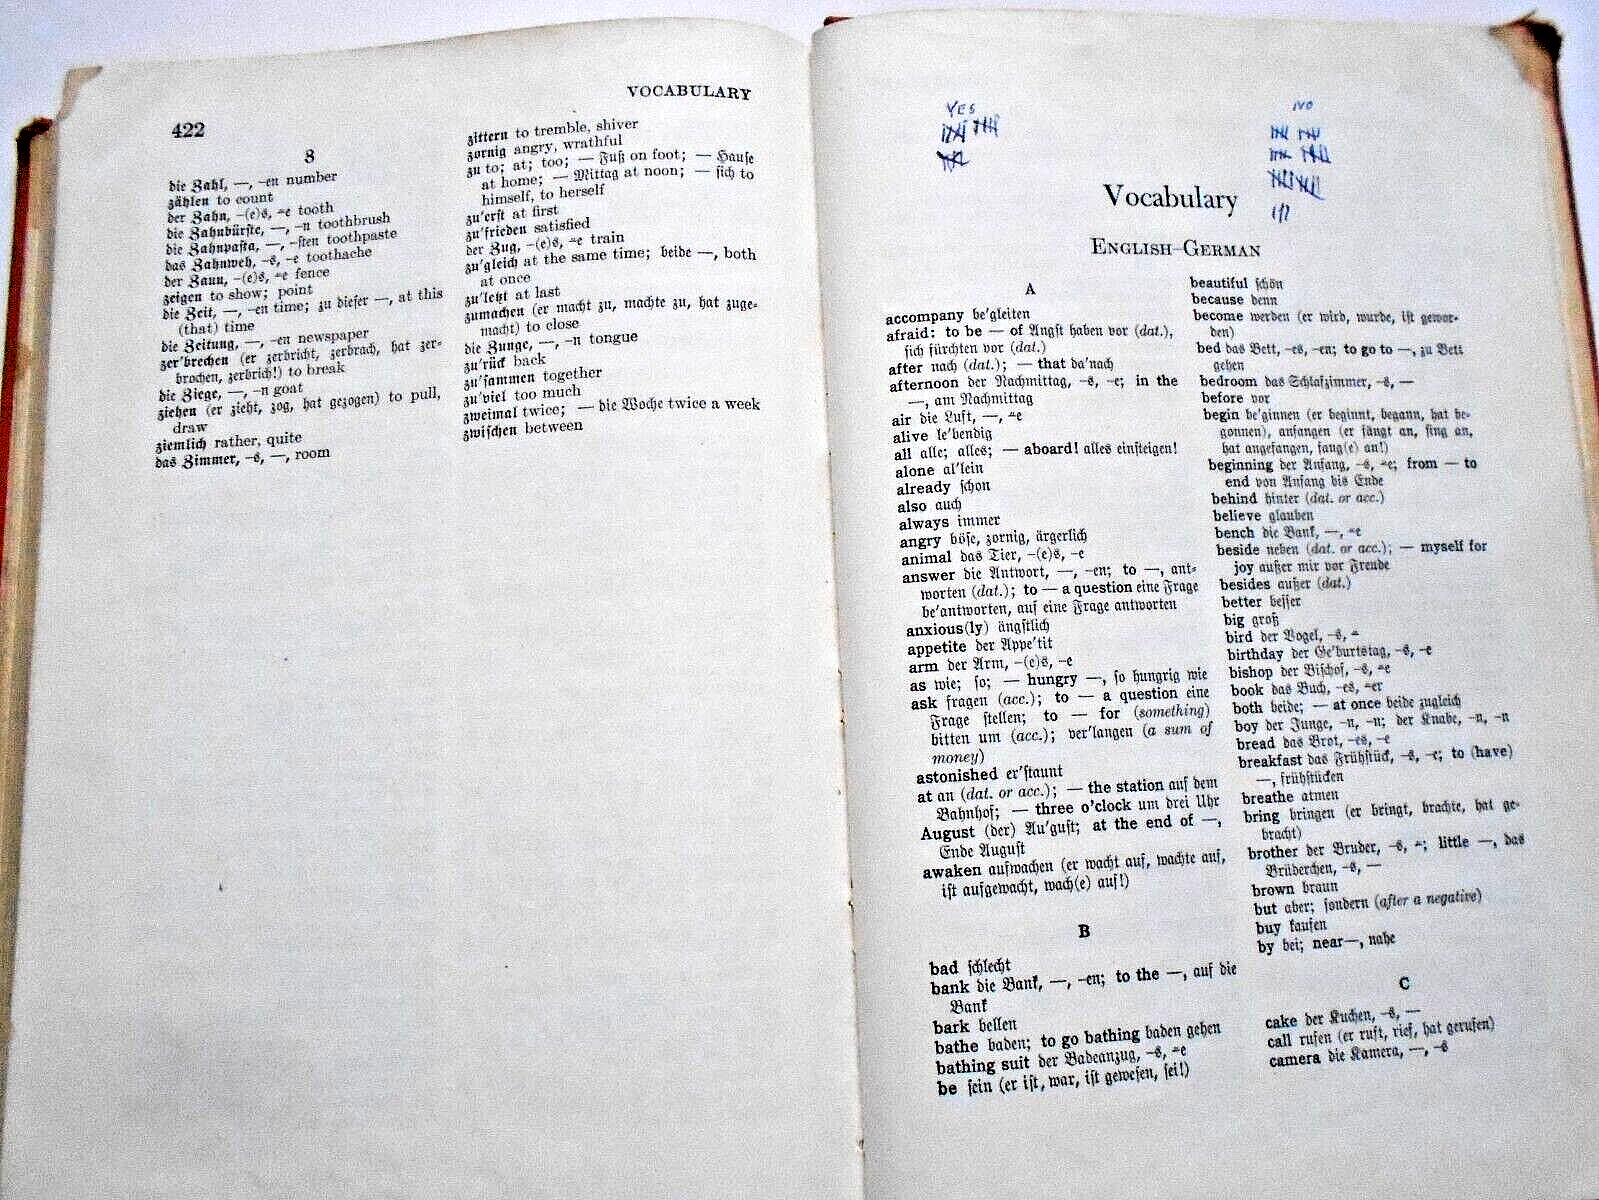 422
VOCABULARY
Z
die Zahl, —, –en number
zählen to count
der Zahn, –(e)s, ⸚e tooth
die Zahnbürste, —, –n toothbrush
die Zahnpasta, —, –sten toothpaste
das Zahnweh, –s, –e toothache
der Zaun, –(e)s, ⸚e fence
zeigen to show; point
die Zeit, —, –en time; zu dieser —, at this
(that) time
die Zeitung, —, –en newspaper
zer'brechen (er zerbricht, zerbrach, hat zer-
brochen, zerbrich!) to break
die Ziege, —, –n goat
ziehen (er zieht, zog, hat gezogen) to pull,
draw
ziemlich rather, quite
das Zimmer, –s, —, room
zittern to tremble, shiver
zornig angry, wrathful
zu to; at; too; — Fuß on foot; — Hause
at home; — Mittag at noon; — sich to
himself, to herself
zu'erst at first
zu'frieden satisfied
der Zug, –(e)s, ⸚e train
zu'gleich at the same time; beide —, both
at once
zu'letzt at last
zumachen (er macht zu, machte zu, hat zuge-
macht) to close
die Zunge, —, –n tongue
zu'rück back
zu'sammen together
zu'viel too much
zweimal twice; — die Woche twice a week
zwischen between
YES
NO
Vocabulary
ENGLISH–GERMAN
A
accompany be'gleiten
afraid: to be — of Angst haben vor (dat.),
sich fürchten vor (dat.)
after nach (dat.); — that da'nach
afternoon der Nachmittag, –s, –e; in the
—, am Nachmittag
air die Luft, —, ⸚e
alive le'bendig
all alle; alles; — aboard! alles einsteigen!
alone al'lein
already schon
also auch
always immer
angry böse, zornig, ärgerlich
animal das Tier, –(e)s, –e
answer die Antwort, —, –en; to —, ant-
worten (dat.); to — a question eine Frage
be'antworten, auf eine Frage antworten
anxious(ly) ängstlich
appetite der Appe'tit
arm der Arm, –(e)s, –e
as wie; so; — hungry —, so hungrig wie
ask fragen (acc.); to — a question eine
Frage stellen; to — for (something)
bitten um (acc.); ver'langen (a sum of
money)
astonished er'staunt
at an (dat. or acc.); — the station auf dem
Bahnhof; — three o'clock um drei Uhr
August (der) Au'gust; at the end of —,
Ende August
awaken aufwachen (er wacht auf, wachte auf,
ist aufgewacht, wach(e) auf!)
B
bad schlecht
bank die Bank, —, –en; to the —, auf die
Bank
bark bellen
bathe baden; to go bathing baden gehen
bathing suit der Badeanzug, –s, ⸚e
be sein (er ist, war, ist gewesen, sei!)
beautiful schön
because denn
become werden (er wird, wurde, ist gewor-
den)
bed das Bett, –es, –en; to go to —, zu Bett
gehen
bedroom das Schlafzimmer, –s, —
before vor
begin be'ginnen (er beginnt, begann, hat be-
gonnen), anfangen (er fängt an, fing an,
hat angefangen, fang(e) an!)
beginning der Anfang, –s, ⸚e; from — to
end von Anfang bis Ende
behind hinter (dat. or acc.)
believe glauben
bench die Bank, —, ⸚e
beside neben (dat. or acc.); — myself for
joy außer mir vor Freude
besides außer (dat.)
better besser
big groß
bird der Vogel, –s, ⸚
birthday der Ge'burtstag, –s, –e
bishop der Bischof, –s, ⸚e
book das Buch, –es, ⸚er
both beide; — at once beide zugleich
boy der Junge, –n, –n; der Knabe, –n, –n
bread das Brot, –es, –e
breakfast das Frühstück, –s, –e; to (have)
—, frühstücken
breathe atmen
bring bringen (er bringt, brachte, hat ge-
bracht)
brother der Bruder, –s, ⸚; little —, das
Brüderchen, –s, —
brown braun
but aber; sondern (after a negative)
buy kaufen
by bei; near—, nahe
C
cake der Kuchen, –s, —
call rufen (er ruft, rief, hat gerufen)
camera die Kamera, —, –s